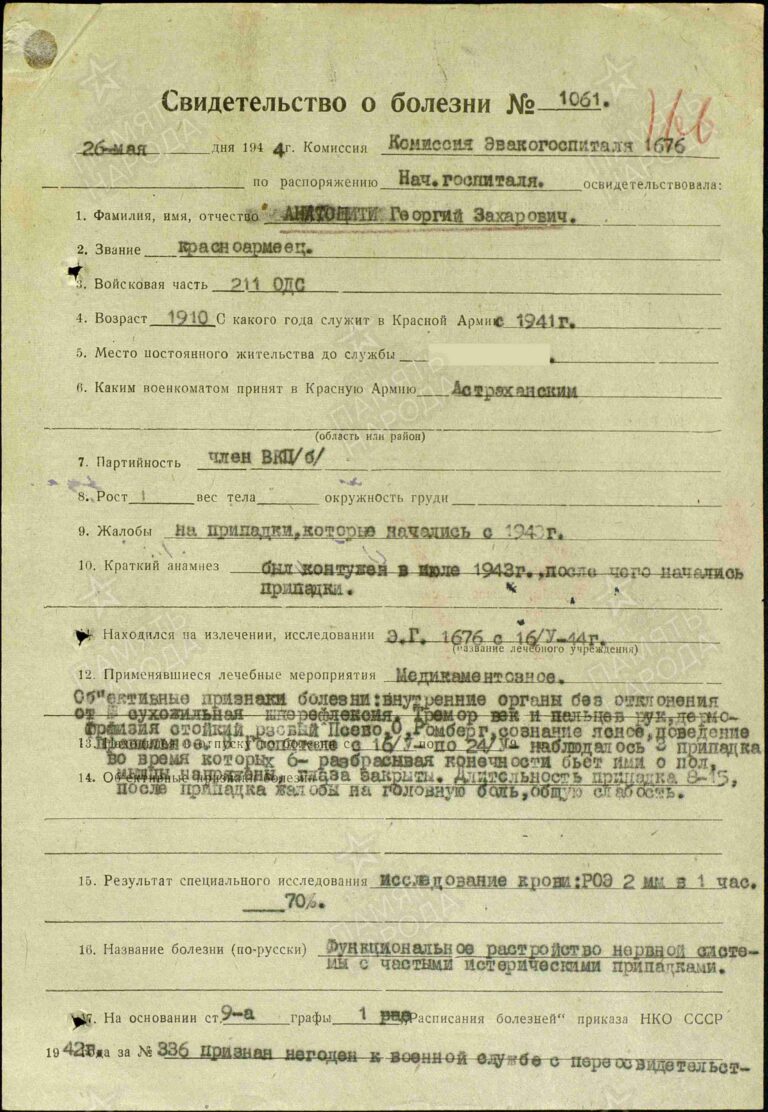 Свидетельство о болезни № 1061.
26-мая дня 1944г. Комиссия Комиссия Эвакогоспиталя 1676
по распоряжению Нач.госпиталя. освидетельствовала:
1. Фамилия, имя, отчество Георгий Захарович.
2. Звание красноармеец.
3. Войсковая часть 211 ОДС
4. Возраст 1910 С какого года служит в Красной Армии с 1941г.
5. Место постоянного жительства до службы
6. Каким военкоматом принят в Красную Армию Астраханским
(область или район)
7. Партийность член ВКП/б/
8. Рост вес тела окружность груди
9. Жалобы на припадки,которые начались с 1943г.
10. Краткий анамнез был контужен в июле 1943г.,после чего начались
припадки.
11. Находился на излечении, исследовании Э.Г. 1676 с 16/У-44г.
(название лечебного учреждения)
12. Применявшиеся лечебные мероприятия Медикаментозное.
Об"ективные признаки болезни:внутренние органы без отклонения
от сухожильная Тремор век и пальцев рук,дермо-
стойкий розовый Ромберг,сознание ясное,поведение
13. с 16/У- по 24/У- наблюдалось припадка
во время которых разбрасывая конечности бьет ими о пол,
14. мышцы напряжены, глаза закрыты. Длительность припадка 8-15,
после припадка жалобы на головную боль,общую слабость.
15. Результат специального исследования исследование крови:РОЭ 2 мм в 1 час.
70%.
16. Название болезни (по-русски) Функциональное растройство нервной систе-
мы с частыми истерическими припадками.
17. На основании ст. 9-а графы 1 „Расписания болезней“ приказа НКО СССР
1942г. за № 336 признан негоден к военной службе с переосвидетельст-